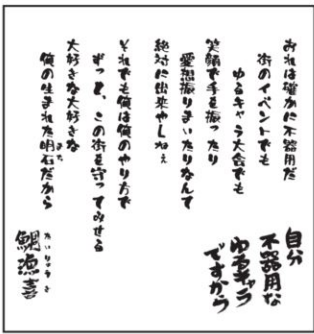 おれは確かに不器用だ
街のイベントでも
ゆるキャラ大会でも
笑顔で手を振ったり
愛想振りまいたりなんて
絶対に出来やしねぇ
それでも俺は俺のやり方で
ずっと、この街を守ってみせる
大好きな大好きな
俺の生まれた明石だから
まち
自分
不器用な
ゆるキャラ
ですから
鯛漁喜
たいりょうき